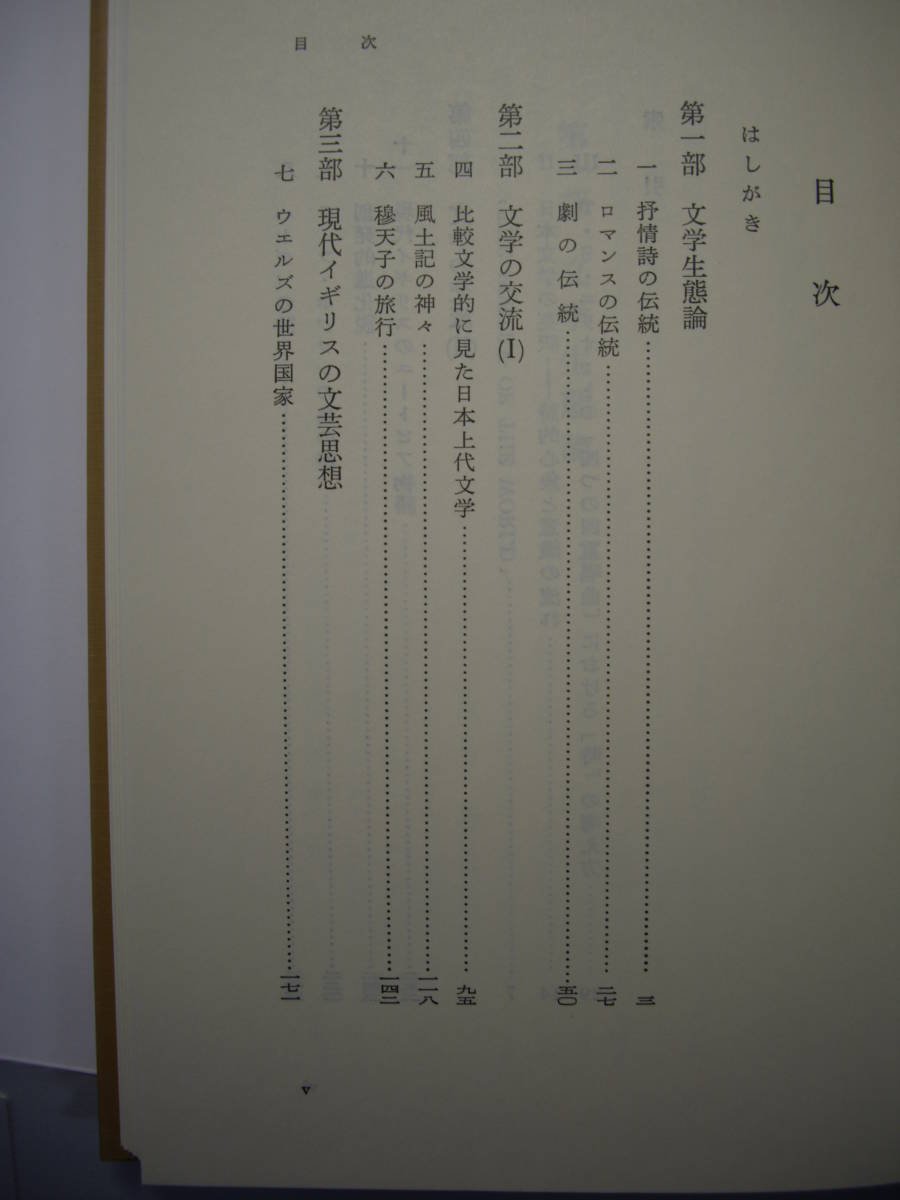 目次
目次
はしがき
第一部 文学生態論
一 抒情詩の伝統……三
二 ロマンスの伝統……二七
三 劇の伝統……五〇
第二部 文学の交流(I)
四 比較文学的に見た日本上代文学……九五
五 風土記の神々……一一八
六 穆天子の旅行……一四二
第三部 現代イギリスの文芸思想
七 ウエルズの世界国家……一七一
v